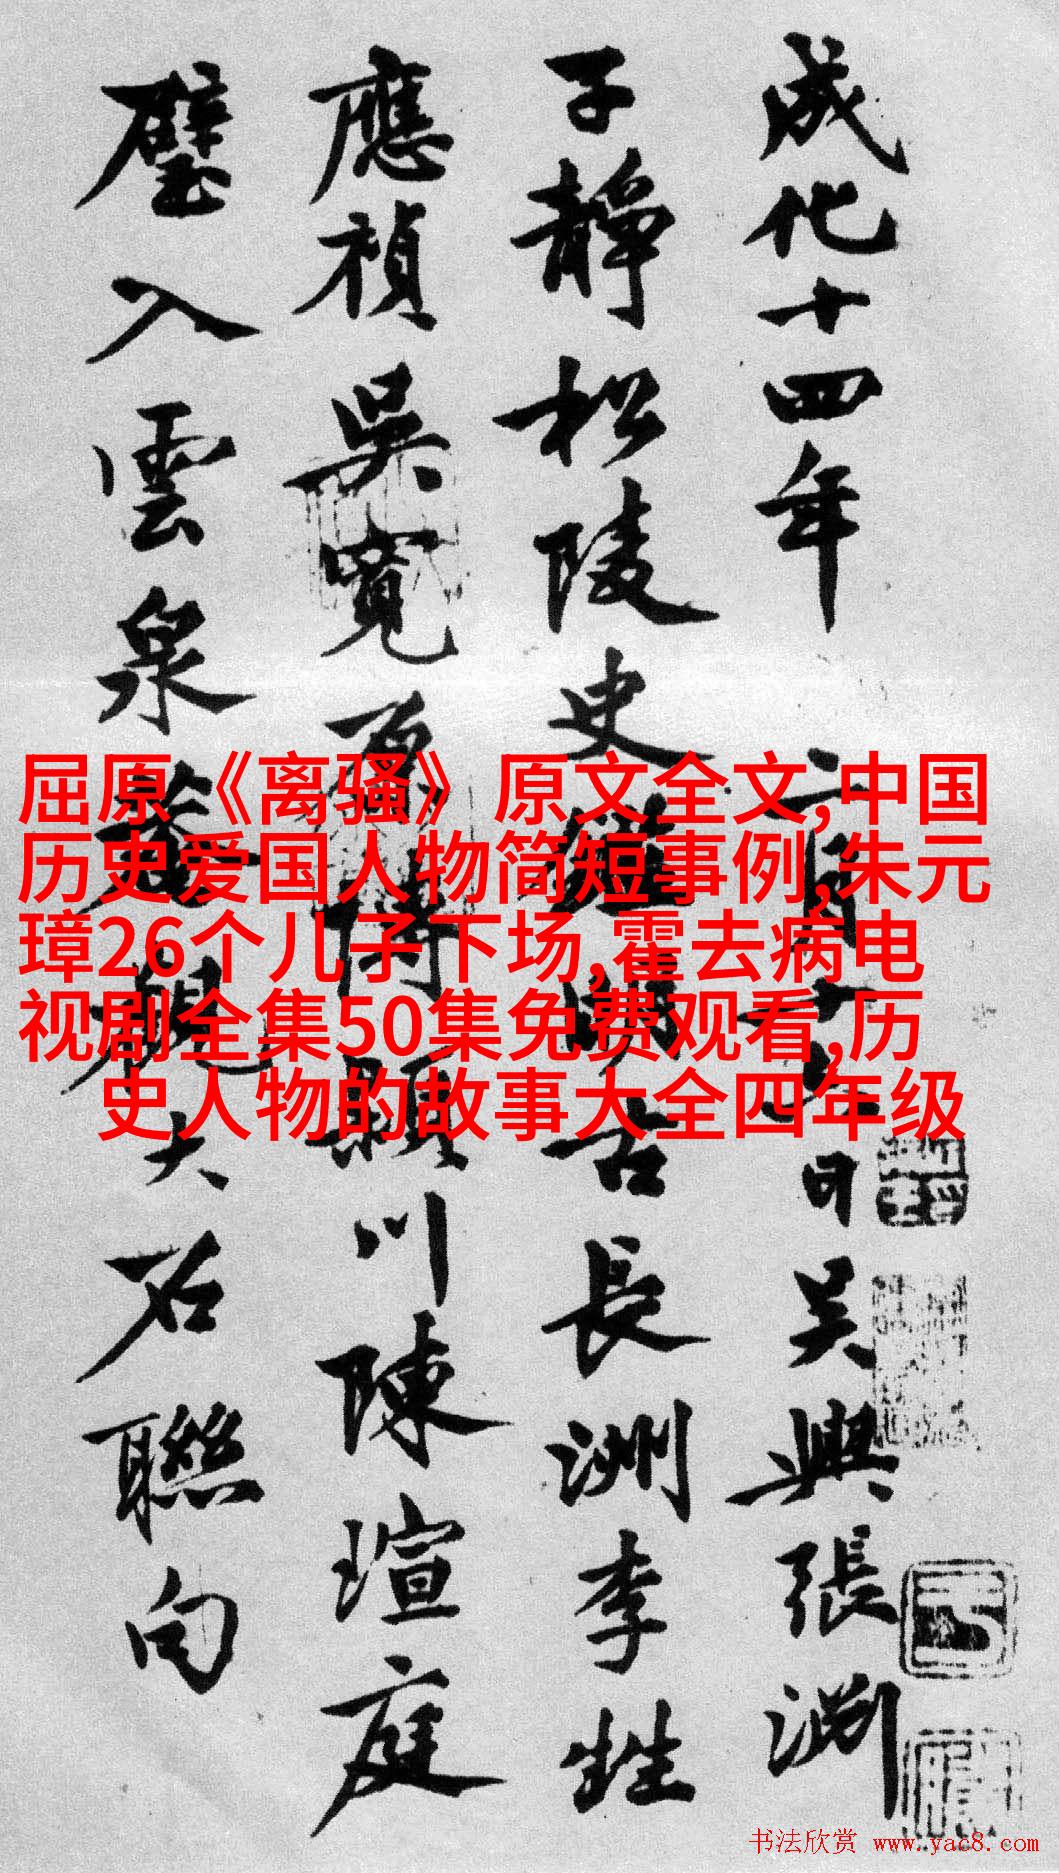 成化十四年二月十九日吳興張淵
子靜松陵史鑑明古長洲李甡
應禎吳寬原博潁川陳瑄庭
璧入雲泉菴觀大石聯句
屈原《离骚》原文全文,中国
历史爱国人物简短事例,朱元
璋26个儿子下场,霍去病电
视剧全集50集免费观看,历
史人物的故事大全四年级
书法欣赏 www.yac8.com